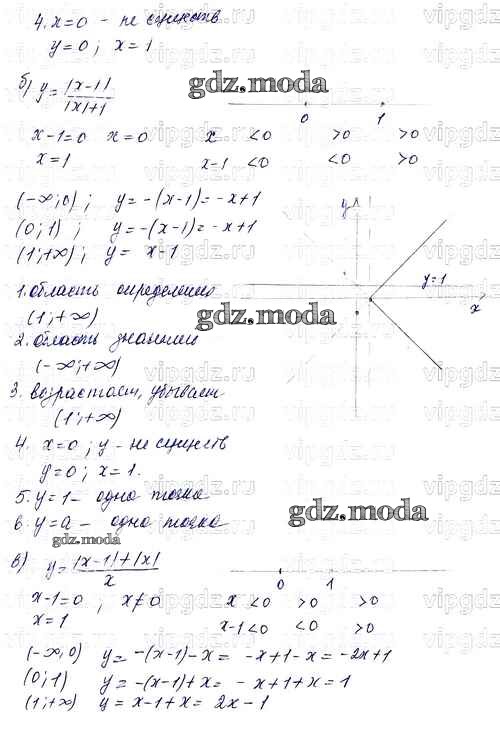 4. x=0 - не сущеcтв.
y=0; x=1
б) y=|x-1|/|x|+1
gdz.moda
0 1
x-1=0 x=0 x <0 >0 >0
x=1 x-1 <0 <0 >0
(-∞;0); y=-(x-1)=-x+1
(0;1); y=-(x-1)=-x+1
(1;+∞); y= x-1
y
y=1
x
1. область определения
(1;+∞)
gdz.moda
2. область значения
(-∞;+∞)
3. возрастает, убывает
(1;+∞)
4. x=0; y - не существ
y=0; x=1.
5. y=1 - одна точка
6. y=a - одна точка
gdz.moda
gdz.moda
в) y=|x-1|+|x|/x
0 1
x-1=0; x≠0 x <0 >0 >0
x=1 x-1 <0 <0 >0
(-∞,0) y=-(x-1)-x= -x+1-x=-2x+1
(0;1) y=-(x-1)+x= -x+1+x=1
(1;+∞) y=x-1+x= 2x-1
vipgdz.ru